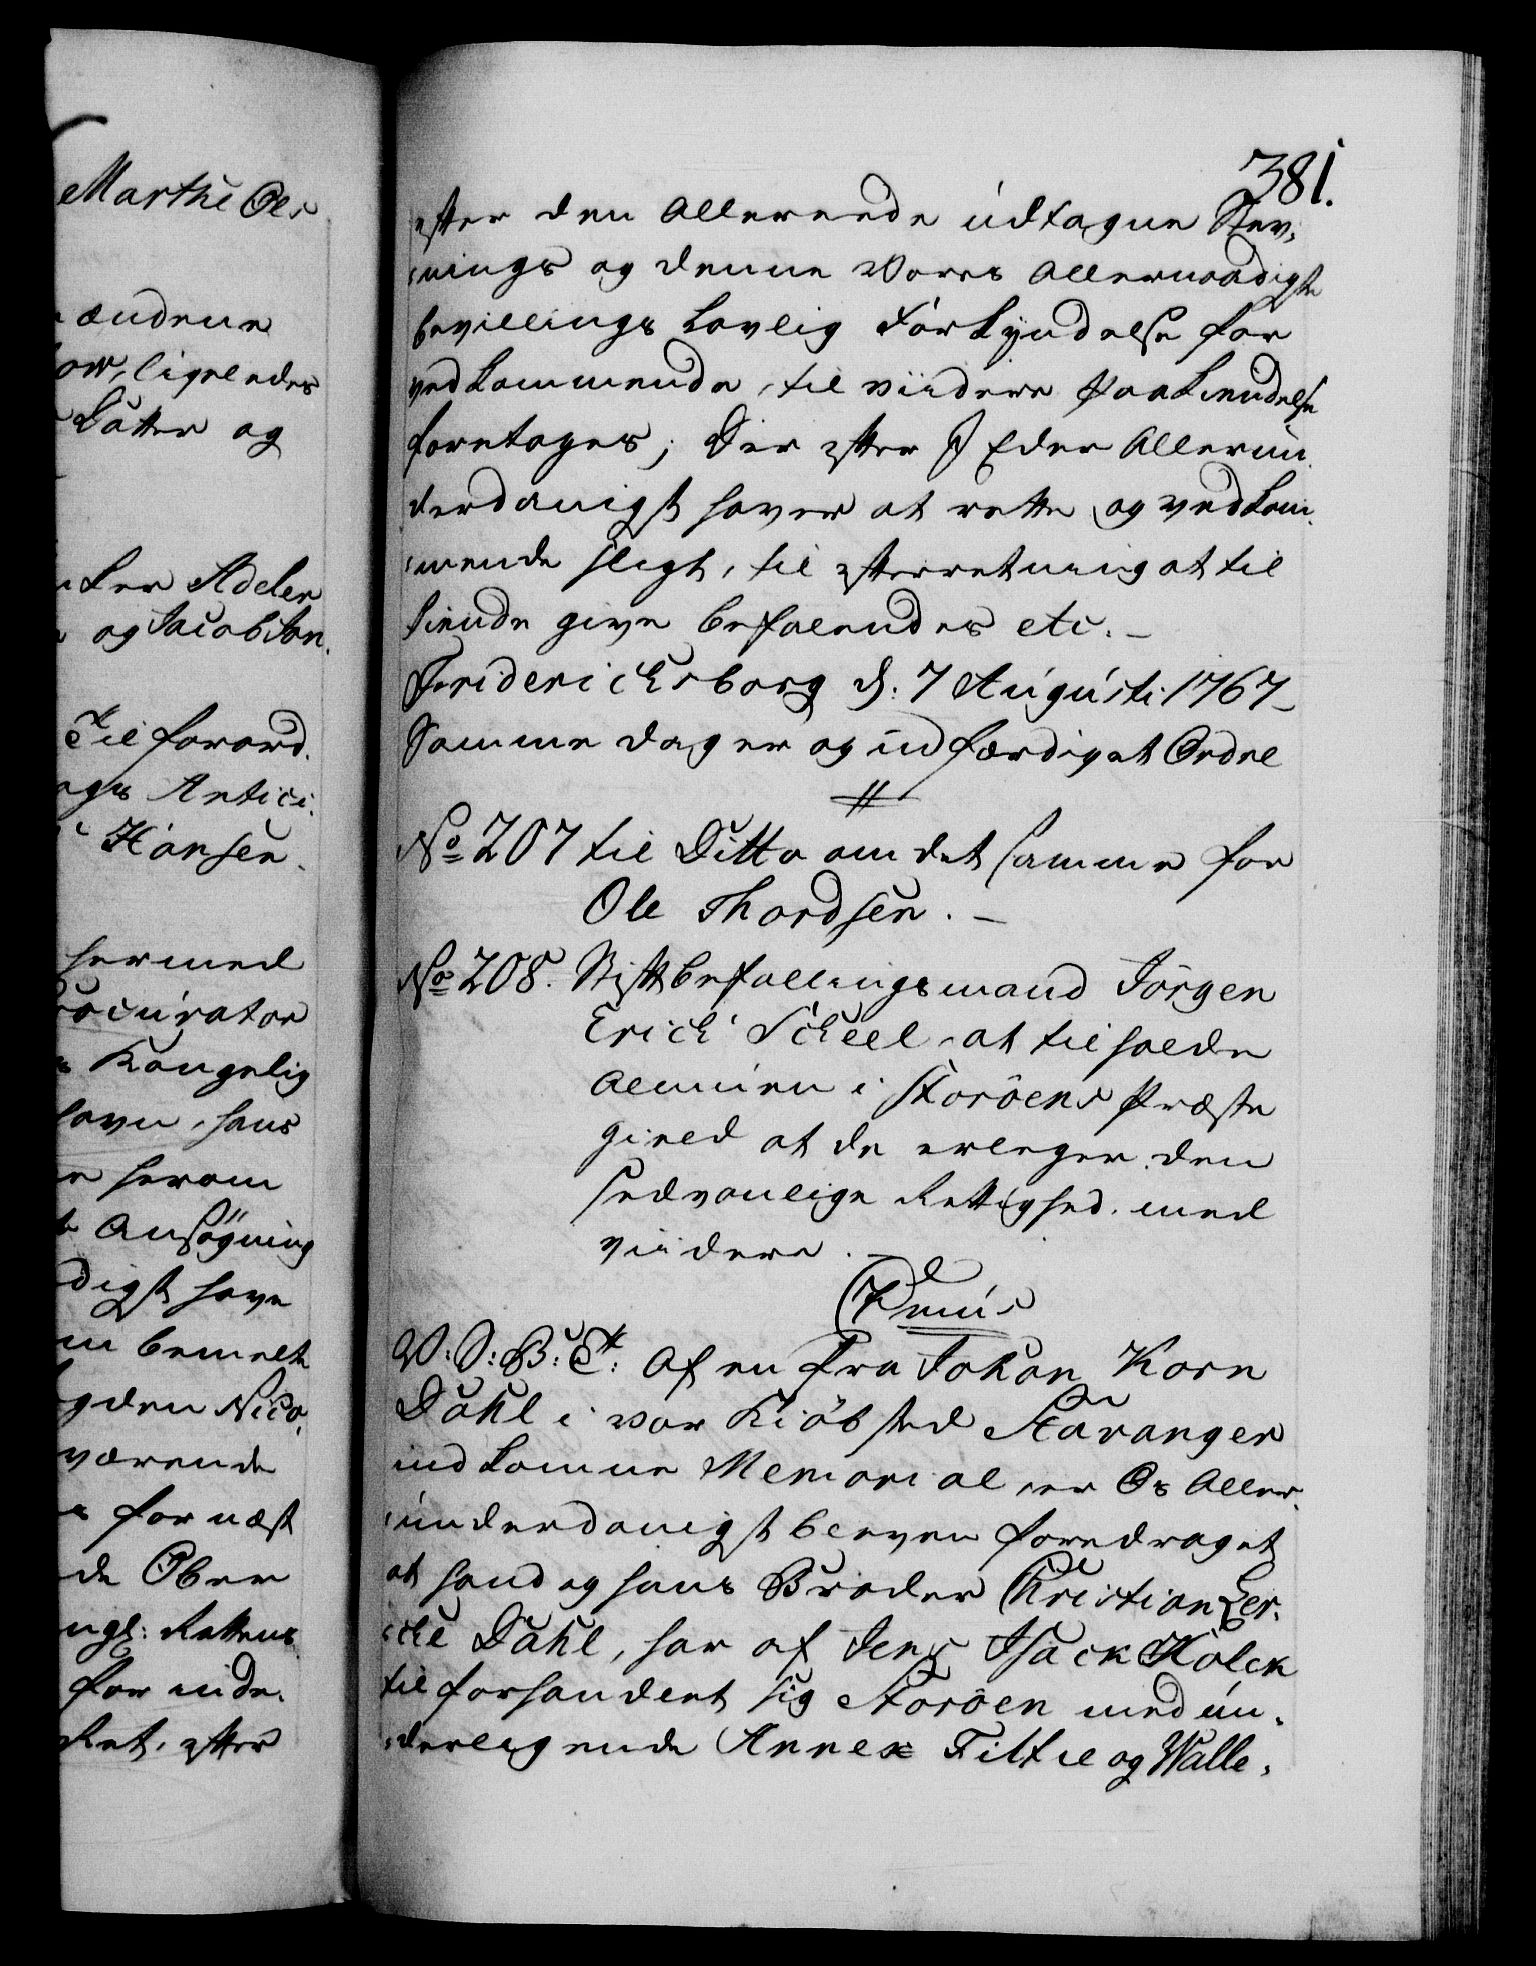 Marthe Ols
ændene
ligeledes
Datter og
ker Adeler
og Jacobson.
Til forord.
Antici
Hansen
hermed
Procurator
Kongelig
havn, hans
herom
Ansøgning
digst have
bemelte
gden Nico,
værende
for næst
de Ober
Rettens
for inde.
Ret, efter
381.
efter den Allereede udtagne Stev,
nings og denne Vores Allernaadigste
bevillings Lovlig Forkyndelse for
vedkommende, til viidere Paakiendelse
foretages; Der efter I Eder Allerun
derdanigst haver at rette og vedkom
mende sligt, til efterretning at til
kiende give befalendes etc. –
Friderichsborg d: 7 Augusti 1767 –
Samme dag er og udfærdiget Ordre
No 207 til Ditto om det samme for
Ole Thordsen. –
No 208. Stiftbefallingsmand Jörgen
Erich Scheel at tilholde
Almuen i Storöens Præste
gield at de erleger den
sedvanlige Rettighed. med
viidere. –
V: S: B: T: Af en fra Johan Korn
Dahl i vor Kiöbsted Stavanger
indkomme Memorial, er Os Aller,
underdanigst bleven foredraget
at hand og hans Broder Christian Ler,
che Dahl, har af Jens Isack Holck
tilforhandlet sig Storöen med un,
derliggende Annex Filtie og Walle,